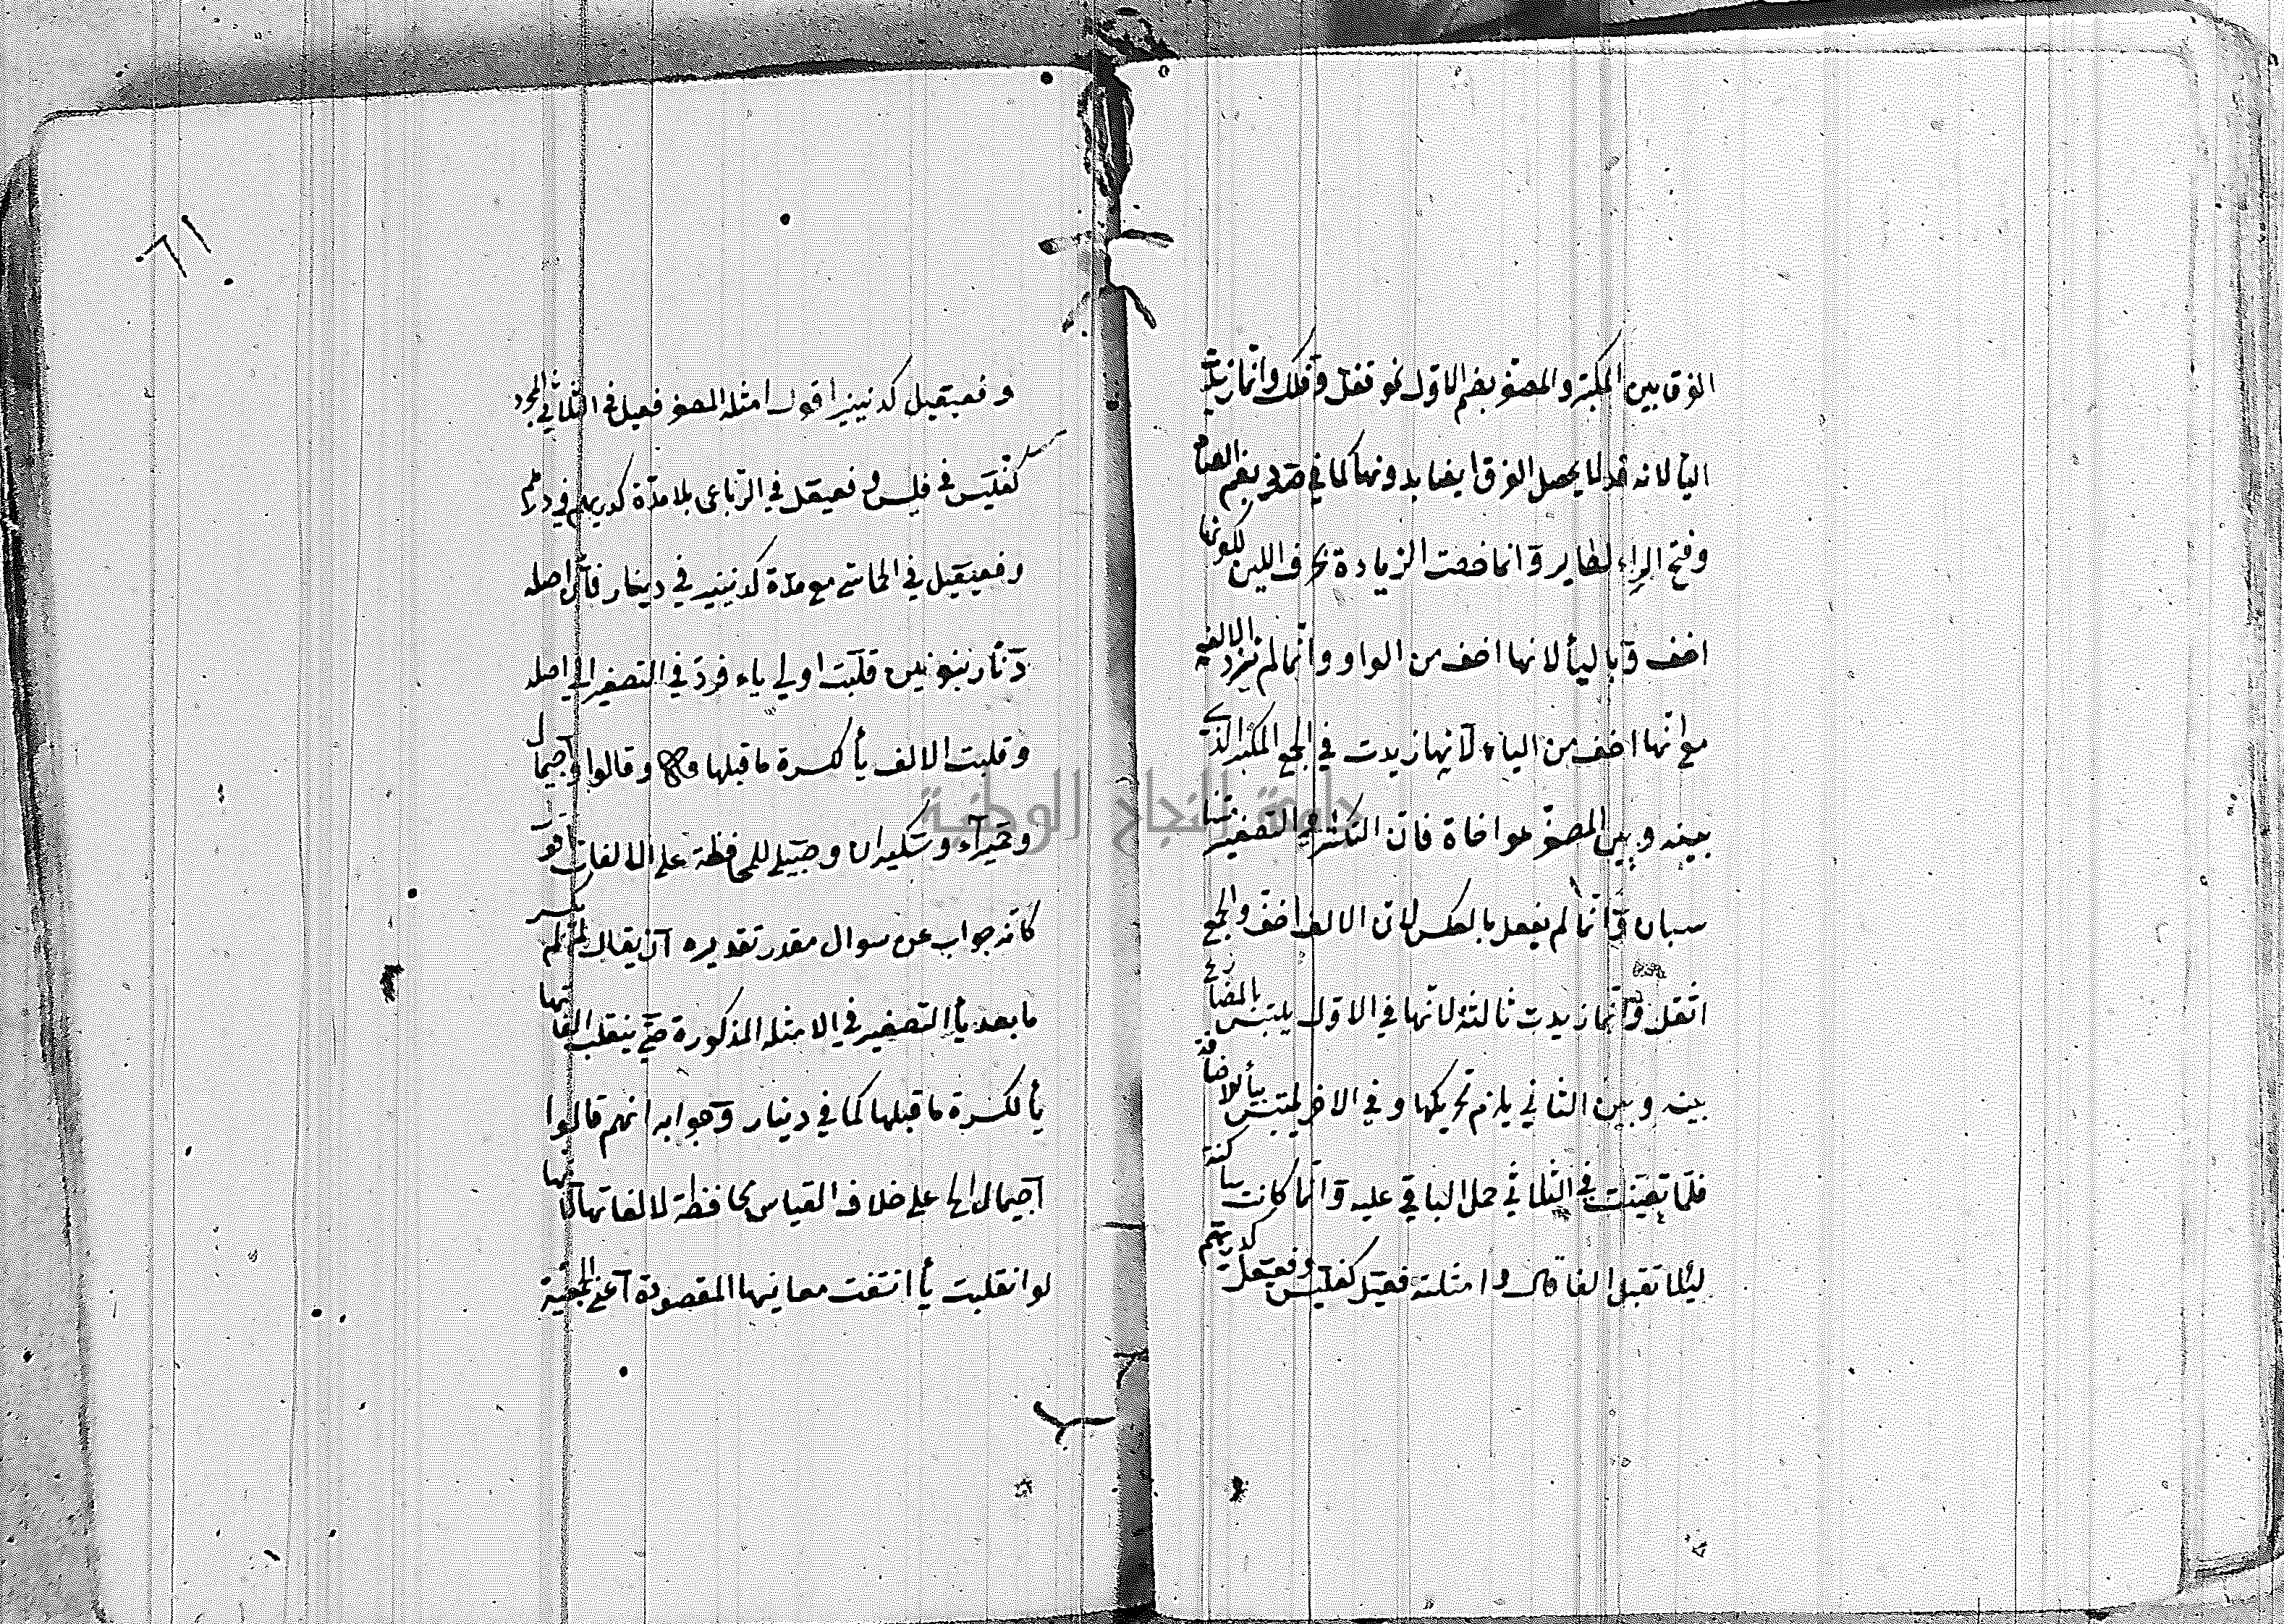 الفرق بين المكبر والمصغر بضم الاول نحو قفل وفلك وانما زيدت
اليأ لانه قد لا يحصل الفرق ايضا بدونها كما في صرد بضم الصاد
وفتح الراء لطاير وانما خصت الزيادة بحرف اللين لكونها
اخف وباليأ لانها اخف من الواو وانما لم تزد الالف
مع انها اخف من الياء لانها زيدت في الجمع المكبر الذي
بينه وبين المصغر مواخاة فان التكثير والتصغير متنا
سبان وانما لم يفعل بالعكس لان الالف اخف والجمع
اثقل وانما زيدت ثالثة لانها في الاول يلتبس بالمضارع
بينه وبين الثاني يلزم تحريكها وفي الاخر يلتبس بيأ الاضافة
فلما تعينت في الثلاثي حمل الباقي عليه وانما كانت ساكنة
ليلا تقبل الفا قال وامثلته فعيل كفليس وفعيعل كدريهم
وفعيعيل كدنينير اقول امثلة المصغر فعيل في الثلاثي المجرد
كفليس في فلس وفعيعل في الرباعي بلا مدة كدريهم في درهم
وفعيعيل في الخماسي مع مدة كدنينير في دينار فان اصله
دنار بنونين قلبت اولي ياء فرد في التصغير الي اصله
وقلبت الالف يأ لكسرة ما قبلها وقالوا اجيمال
وحميرآء وسكيران وحبيلي للمحافظة علي الالفات اقول
كانه جواب عن سوال مقدر تقديره ان يقال لم لم يكسر
ما بعد يأ التصغير في الامثلة المذكورة حتي ينقلب الفاتها
يأ لكسرة ما قبلها كما في دينار وجوابه انهم قالوا
اجيمال الخ علي خلاف القياس محافظة لالفاتها لانها
لو انقلبت يأ انتفت معانيها المقصودة اعني الجمعية
٦١
جامعة النجاح الوطنية